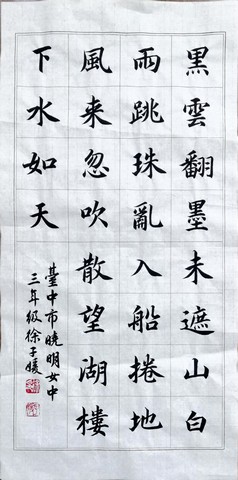 黑雲翻墨未遮山白
雨跳珠亂入船捲地
風来忽吹散望湖樓
下水如天
臺中市曉明女中
三年級徐子媛